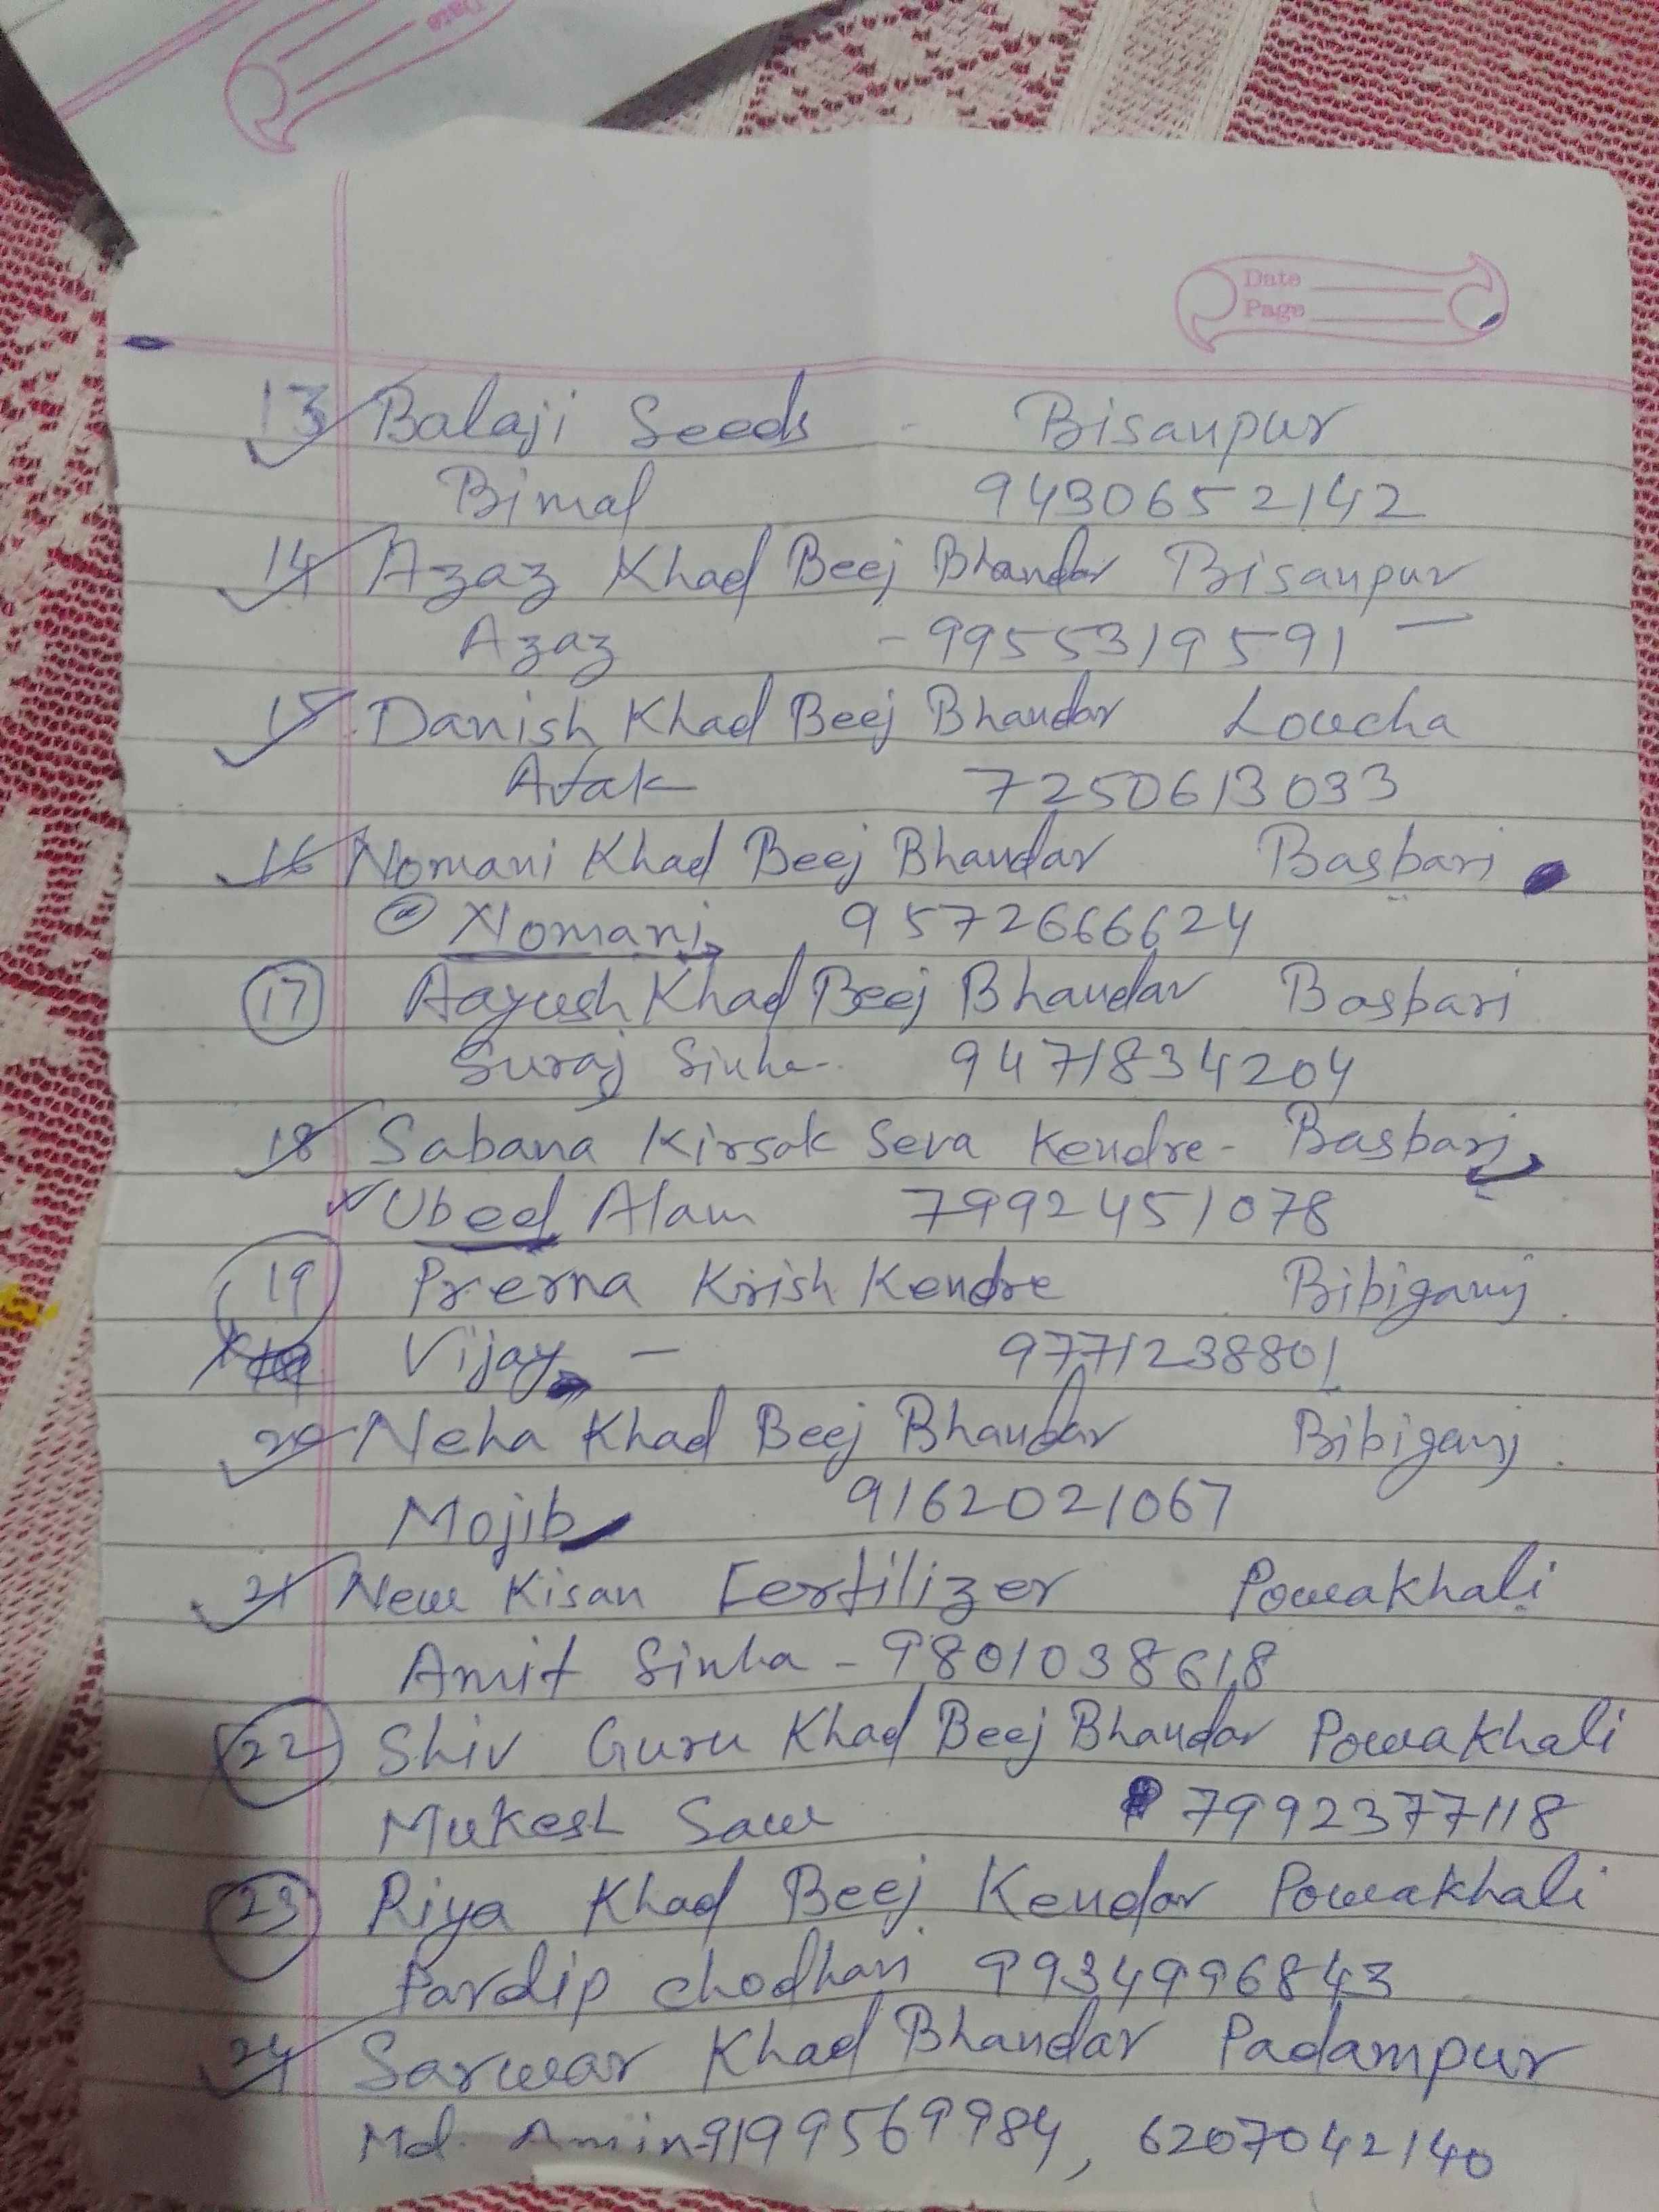 Date
Date
Page
13 Balaji Seeds - Bisanpur
Bimal 9430652142
14 Azaz Khad Beej Bhandar Bisanpur
Azaz - 9955319591
15 Danish Khad Beej Bhandar Loucha
Afak 7250613033
16 Nomani Khad Beej Bhandar Basbari
Nomani 9572666624
17 Aayush Khad Beej Bhandar Basbari
Suraj Sinha - 9471834204
18 Sabana Kirsak Seva Kendre - Basbari
Ubed Alam 7992451078
19 Prerna Krish Kendre Bibiganj
Vijay - 9771238801
20 Neha Khad Beej Bhandar Bibiganj
Mojib 9162021067
21 New Kisan Fertilizer Powakhali
Amit Sinha - 9801038618
22 Shiv Guru Khad Beej Bhandar Powakhali
Mukesh Saw 7992377118
23 Riya Khad Beej Kendar Powakhali
Pardip chodhari 9934996843
24 Sarwar Khad Bhandar Padampur
Md. Amin-9199569984, 6207042140